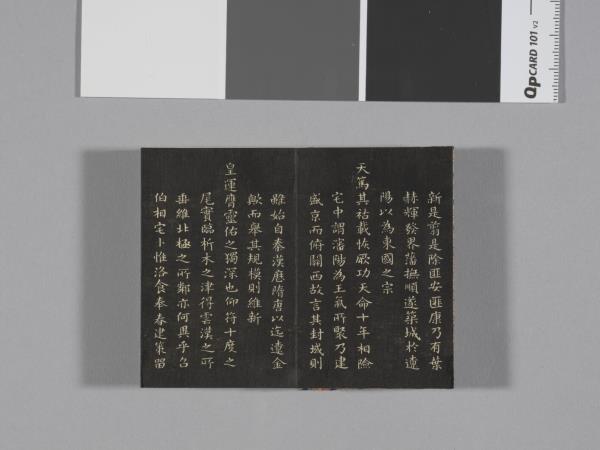 新是翦是除匪安匪康乃有葉
赫輝發界藩撫順遂築城於遼
陽以為東國之宗
天篤其祜載恢厥功天命十年相險
宅中謂瀋陽為王氣所聚乃建
盛京而俯關西故言其封域則
雖始自秦漢歷隋唐以迄遼金
歟而舉其規模則維新
皇運膺靈佑之獨深也仰符十度之
尾實臨析木之津得雲漢之所
垂維北極之所鄰亦何異乎召
伯相宅卜惟洛食奉春建策留
QpCARD 101 v2